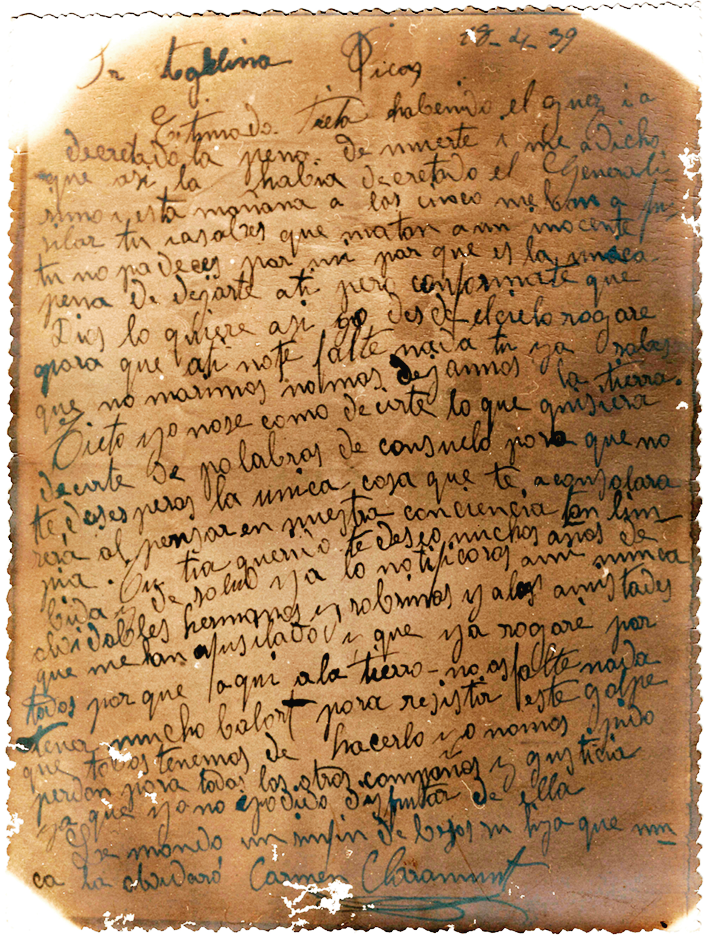 Sr Agelina Picas 18-4-39
Estimada Tieta habenido el guez i a
decretado la pena de muerte i me a dicho
que asi la habia decretado el Generali
simo i esta mañana a las cinco me ban a fu
silar tu ia sabes que matan a un inocente
tu no padeces por mi por que es la unica
pena de dejarte a ti pero conformate que
Dios lo quiere asi yo desde el cielo rogare
para que a ti no te falte nada tu ya sabes
que no morimos no mas dejamos la tierra.
Tieta yo no se como decirte lo que quisiera
decirte de palabras de consuelo para que no
te desesperas la unica cosa que te aconsolara
sera al pensar en nuestra conciencia tan lim-
pia. Tu tia querida te deseo muchos años de
bida y de salud y a lo notificaras a mi nunca
olvidables hermanos y sobrinos y a las amistades
que me han afusilado y que ya rogare por
todos por que aqui a la tierra no os falte nada
tener mucho balor para resistir este golpe
que todos tenemos de hacerlo yo no mas pido
perdon para todos los otros compañas y gusticia
ya que yo no e podido disfrutar de ella
Le mando un sinfin de besos su hija que nun-
ca la olvidará Carmen Claramunt